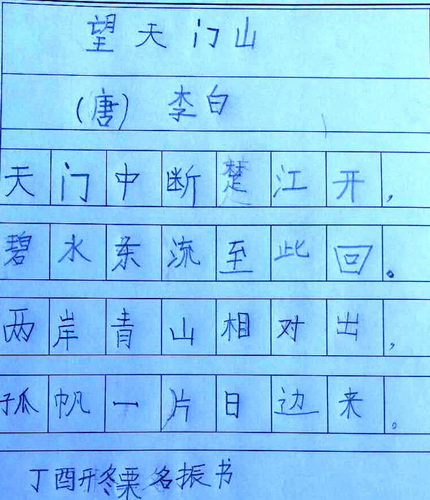 望天门山
(唐) 李白
天门中断楚江开,
碧水东流至此回。
两岸青山相对出,
孤帆一片日边来。
丁酉 冬栗名振书